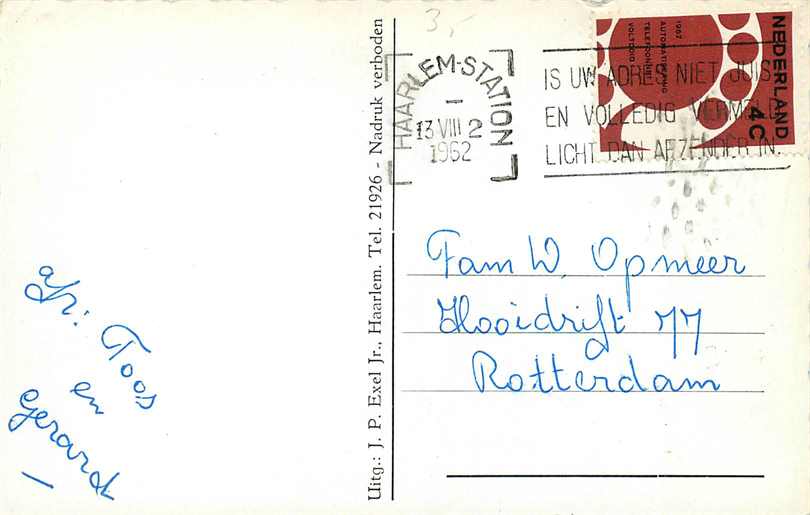 3,-
HAARLEM-STATION
13 VIII 2
1962
IS UW ADRES NIET JUIST
EN VOLLEDIG VERMELD
LICHT DAN AFZENDER IN.
NEDERLAND
4C
1962
AUTOMATISERING
TELEFOONNET
VOLTOOID
Uitg.: J. P. Exel Jr., Haarlem. Tel. 21926 - Nadruk verboden
Fam W. Opmeer
Hooidrift 77
Rotterdam
afz: Toos
en
Gerard